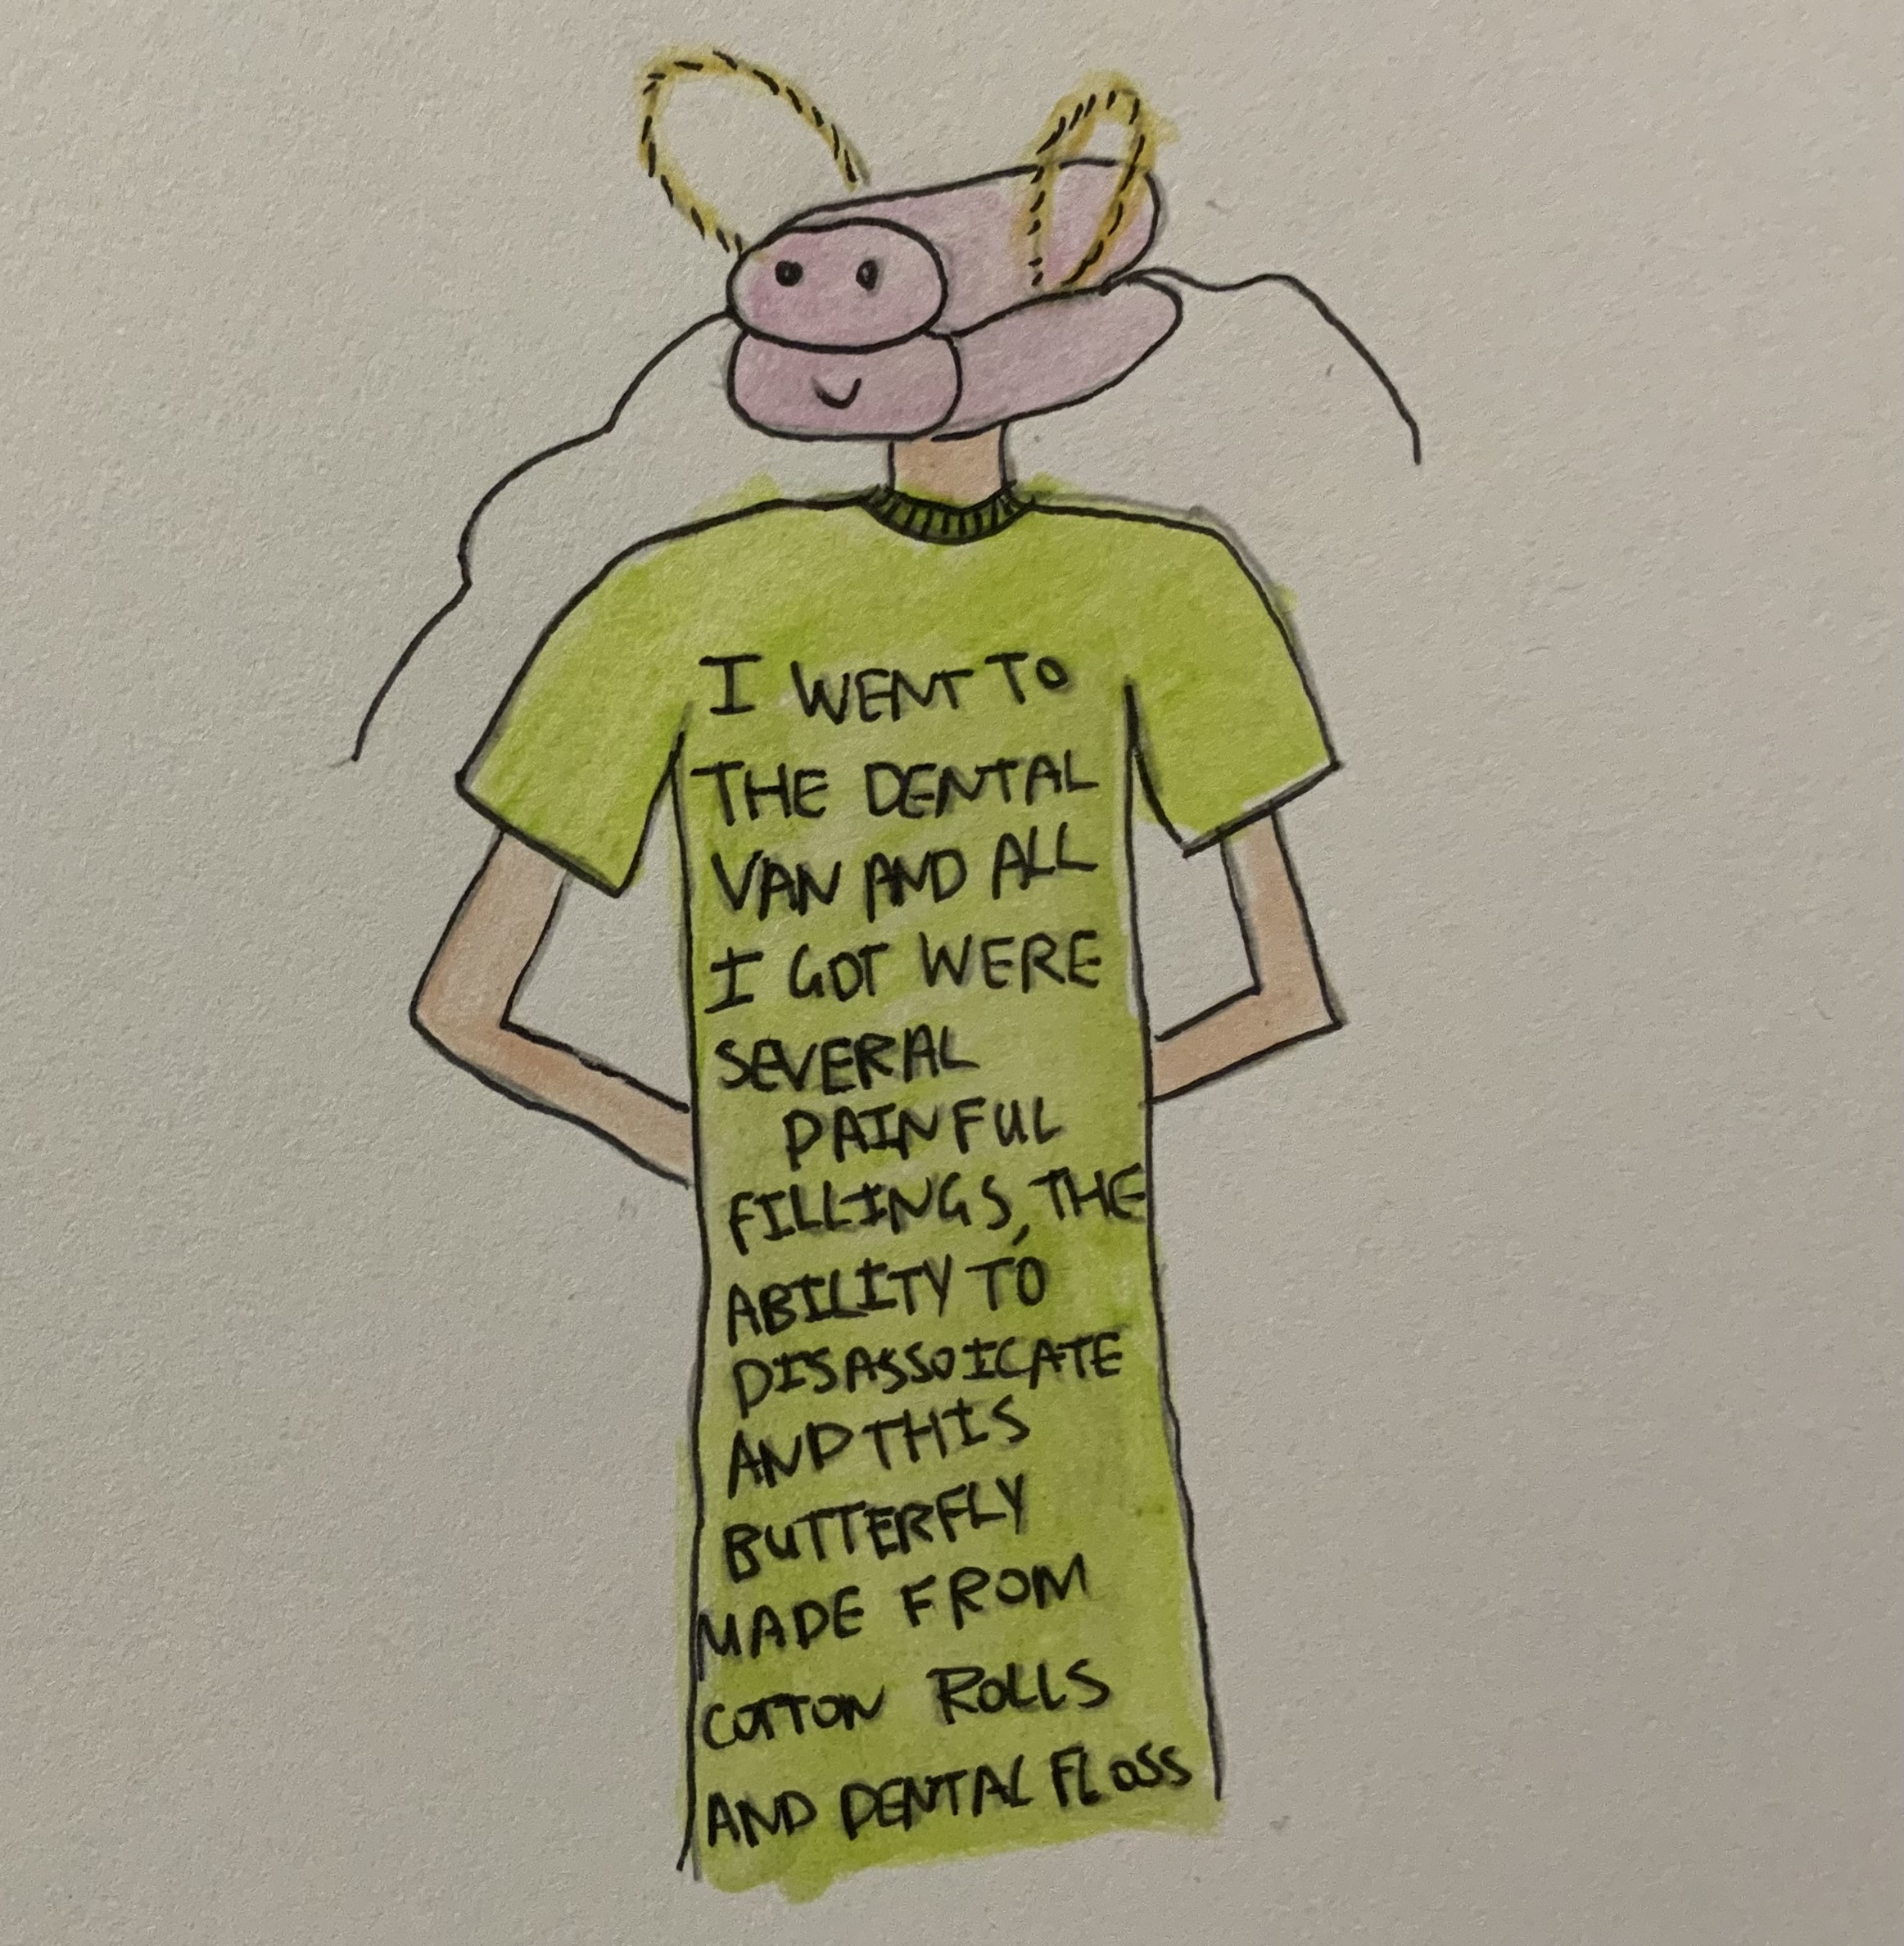 I WENT TO
THE DENTAL
VAN AND ALL
I GOT WERE
SEVERAL
PAINFUL
FILLINGS, THE
ABILITY TO
DISASSOICATE
AND THIS
BUTTERFLY
MADE FROM
COTTON ROLLS
AND DENTAL FLOSS